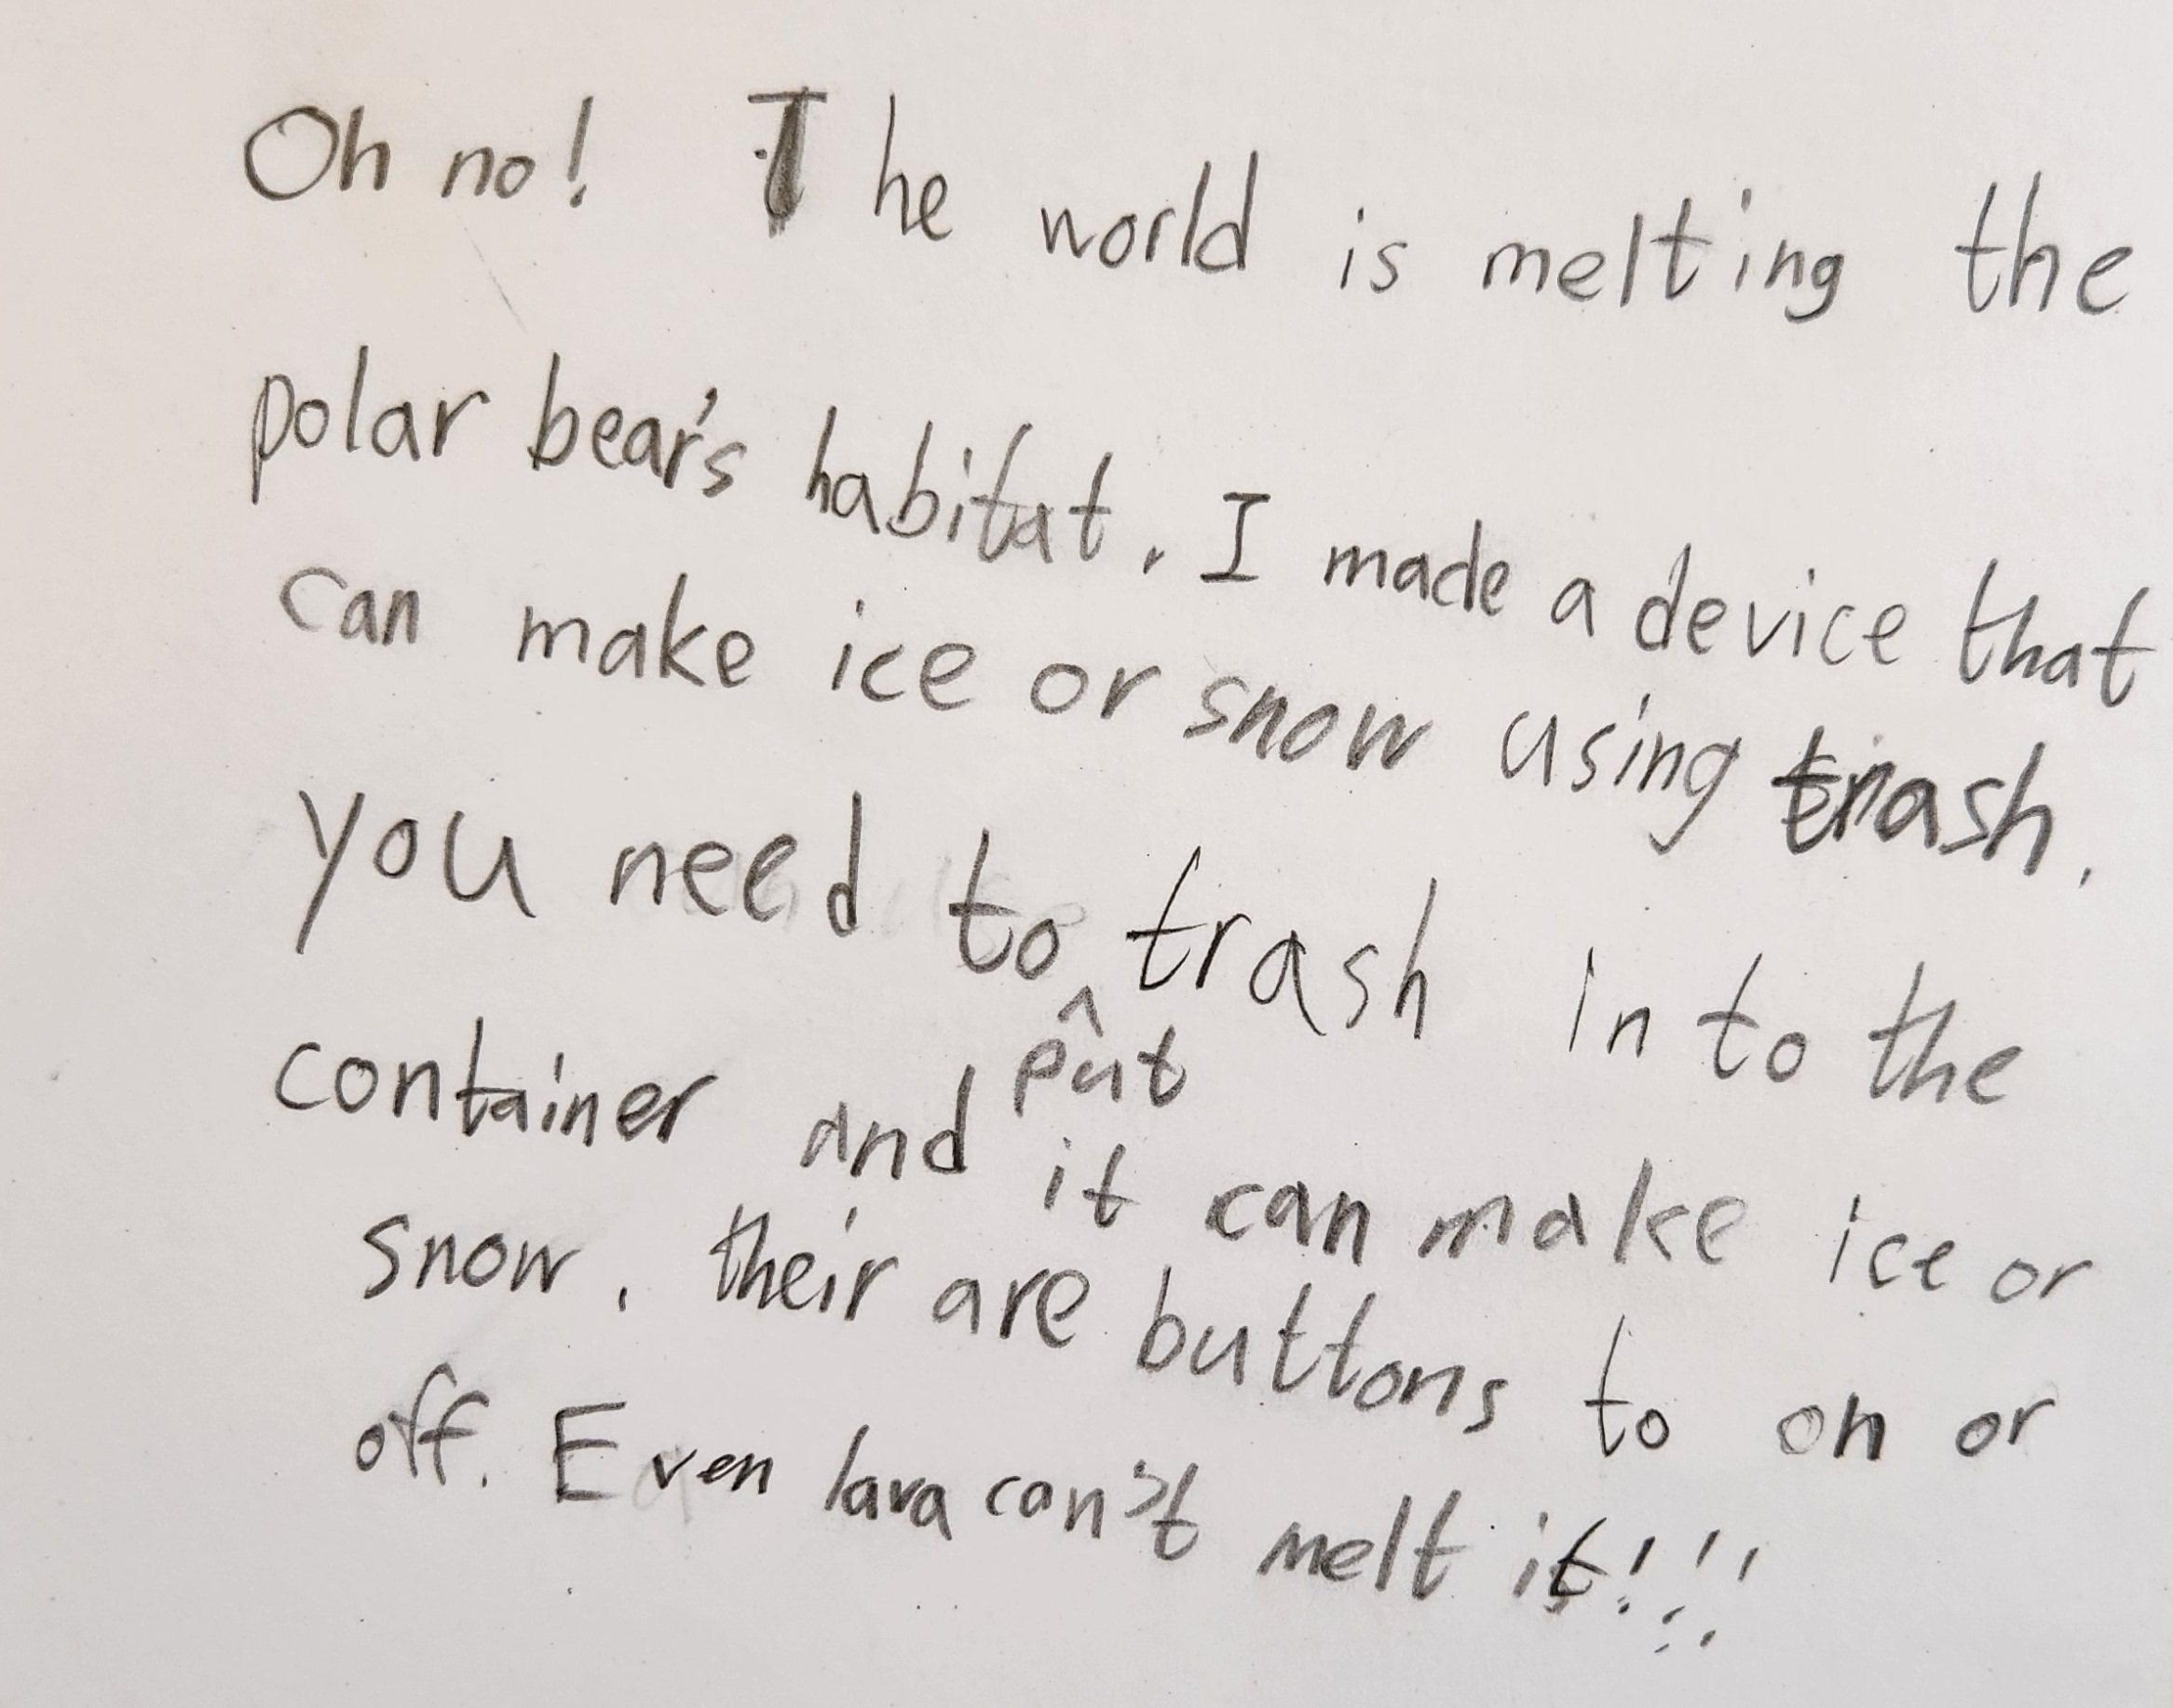 Oh no! The world is melting the
polar bear's habitat. I made a device that
can make ice or snow using trash.
you need to put trash in to the
container and it can make ice or
snow. their are buttons to on or
off. Even lava can't melt it!!!